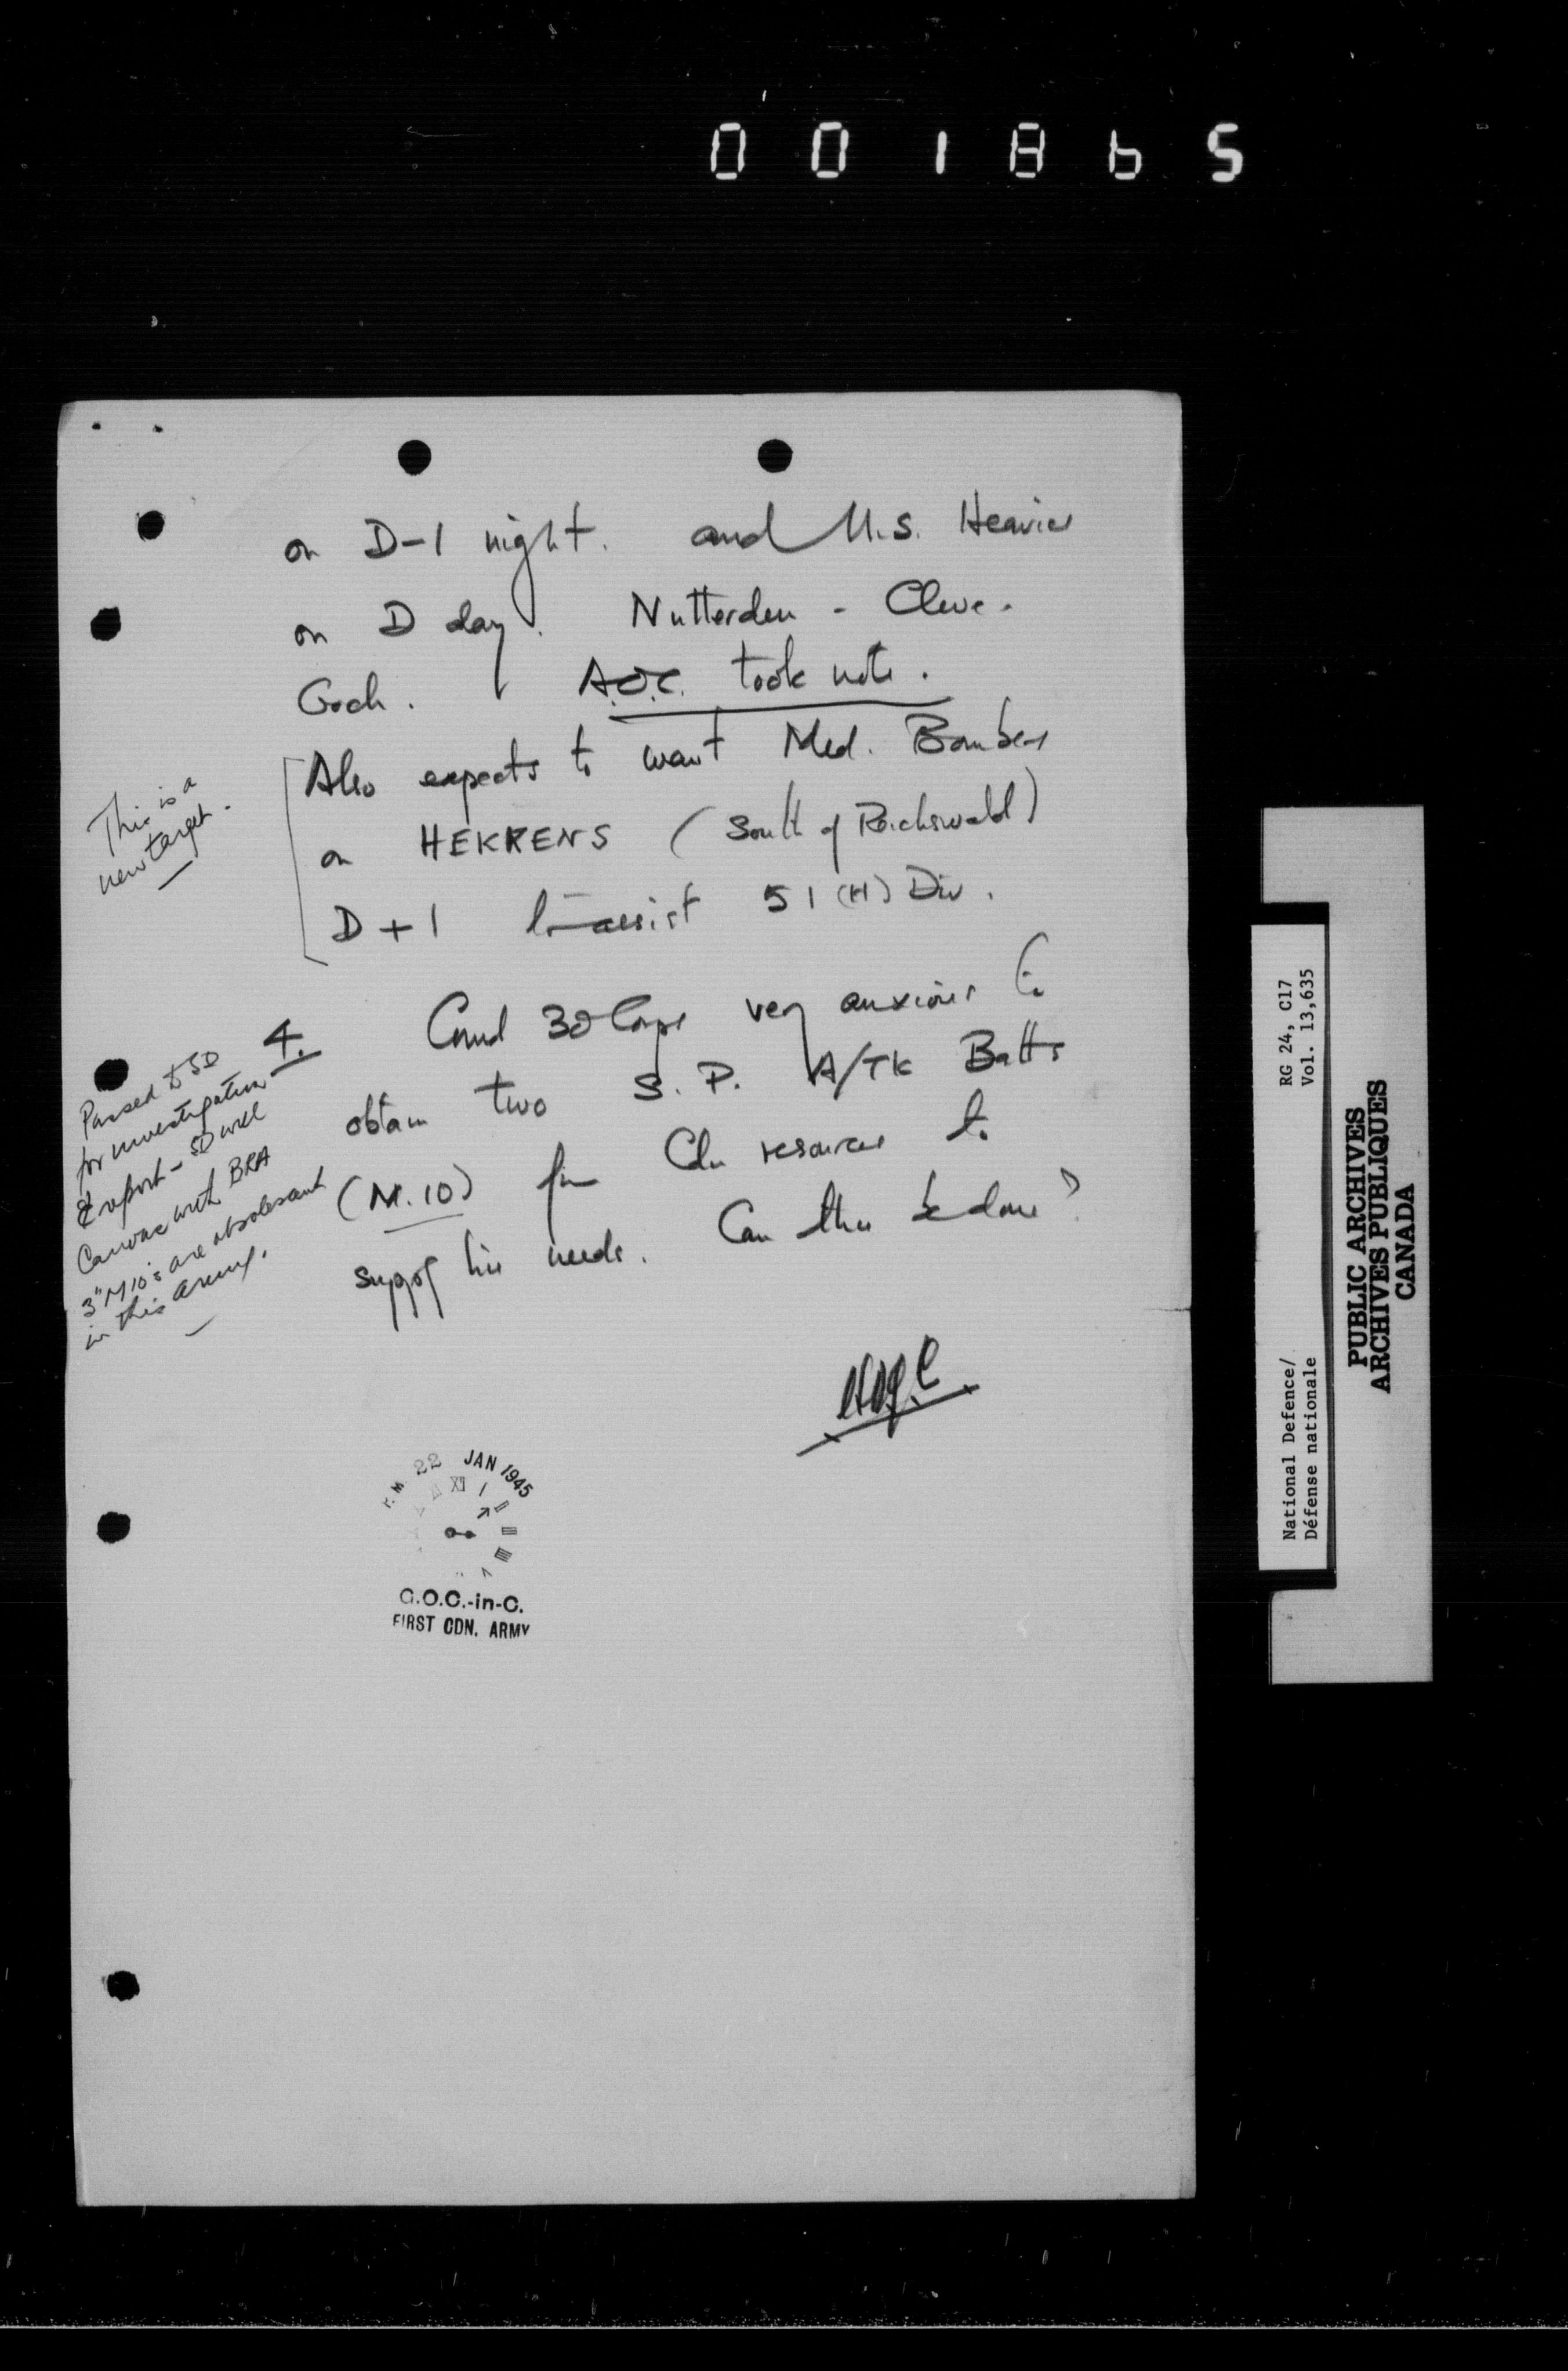 001865
on D-1 night. and U.S. Heavies
on D day. Nutterden - Cleve.
Goch. A.O.C. took note.
This is a
new target.
Also expects to want Med. Bombers
on HEKRENS (South of Reichswald)
D+1 to assist 51 (H) Div.
4. Comd 30 Corps very anxious to
obtain two S.P. A/TK Batts
(M.10) fm Cdn resources to
supply his needs. Can this be done?
Passed to SD
for investigation
& report - SD will
canvas with BRA
3" M10's are obsolescent
in this Army.
P.M. 22 JAN 1945
G.O.C.-in-C.
FIRST CDN. ARMY
RG 24, C17
Vol. 13,635
National Defence/
Défense nationale
PUBLIC ARCHIVES
ARCHIVES PUBLIQUES
CANADA